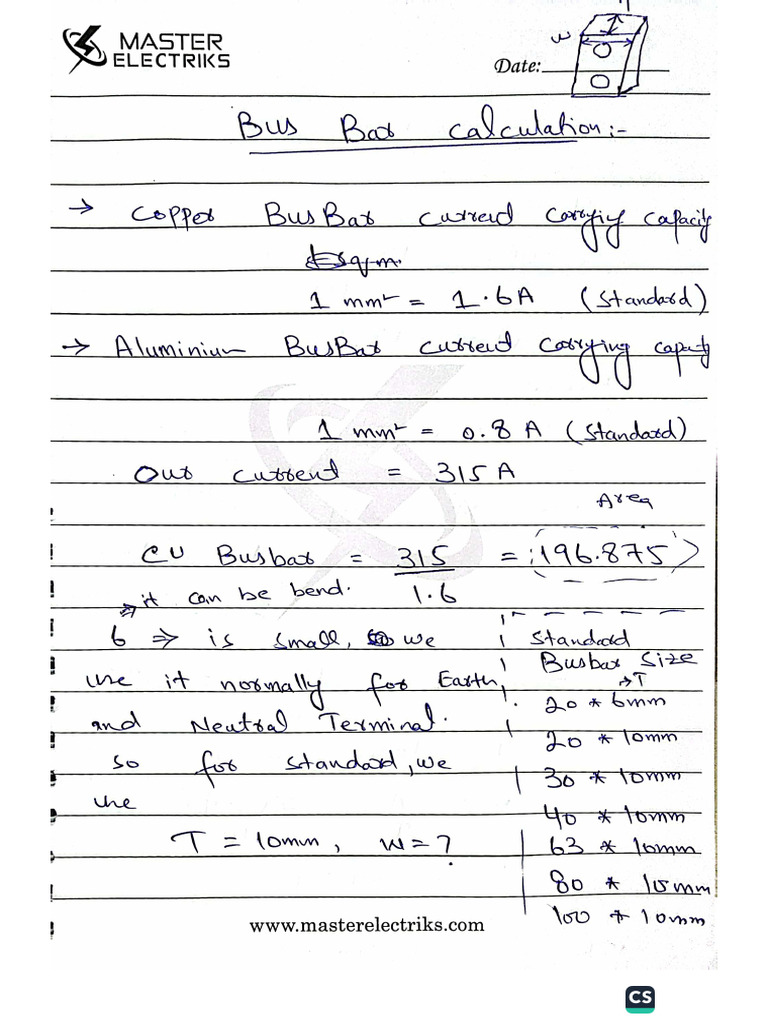 MASTER
ELECTRIKS
Date:
W
Bus Bar calculation:-
→ Copper BusBar current carryig capacity
1 mm² = 1.6A (Standard)
→ Aluminium BusBar current carrying capacity
1 mm² = 0.8 A (Standard)
Our current = 315 A
Area
CU Busbar = 315 = 196.875
1.6
⇒ it can be bend.
6 ⇒ is small, so we
use it normally for Earth,
and Neutral Terminal.
so for standard, we
use
T = 10mm, W = ?
Standard
Busbar size
→T
20 * 6mm
20 * 10mm
30 * 10mm
40 * 10mm
63 * 10mm
80 * 10mm
100 * 10mm
www.masterelectriks.com
CS